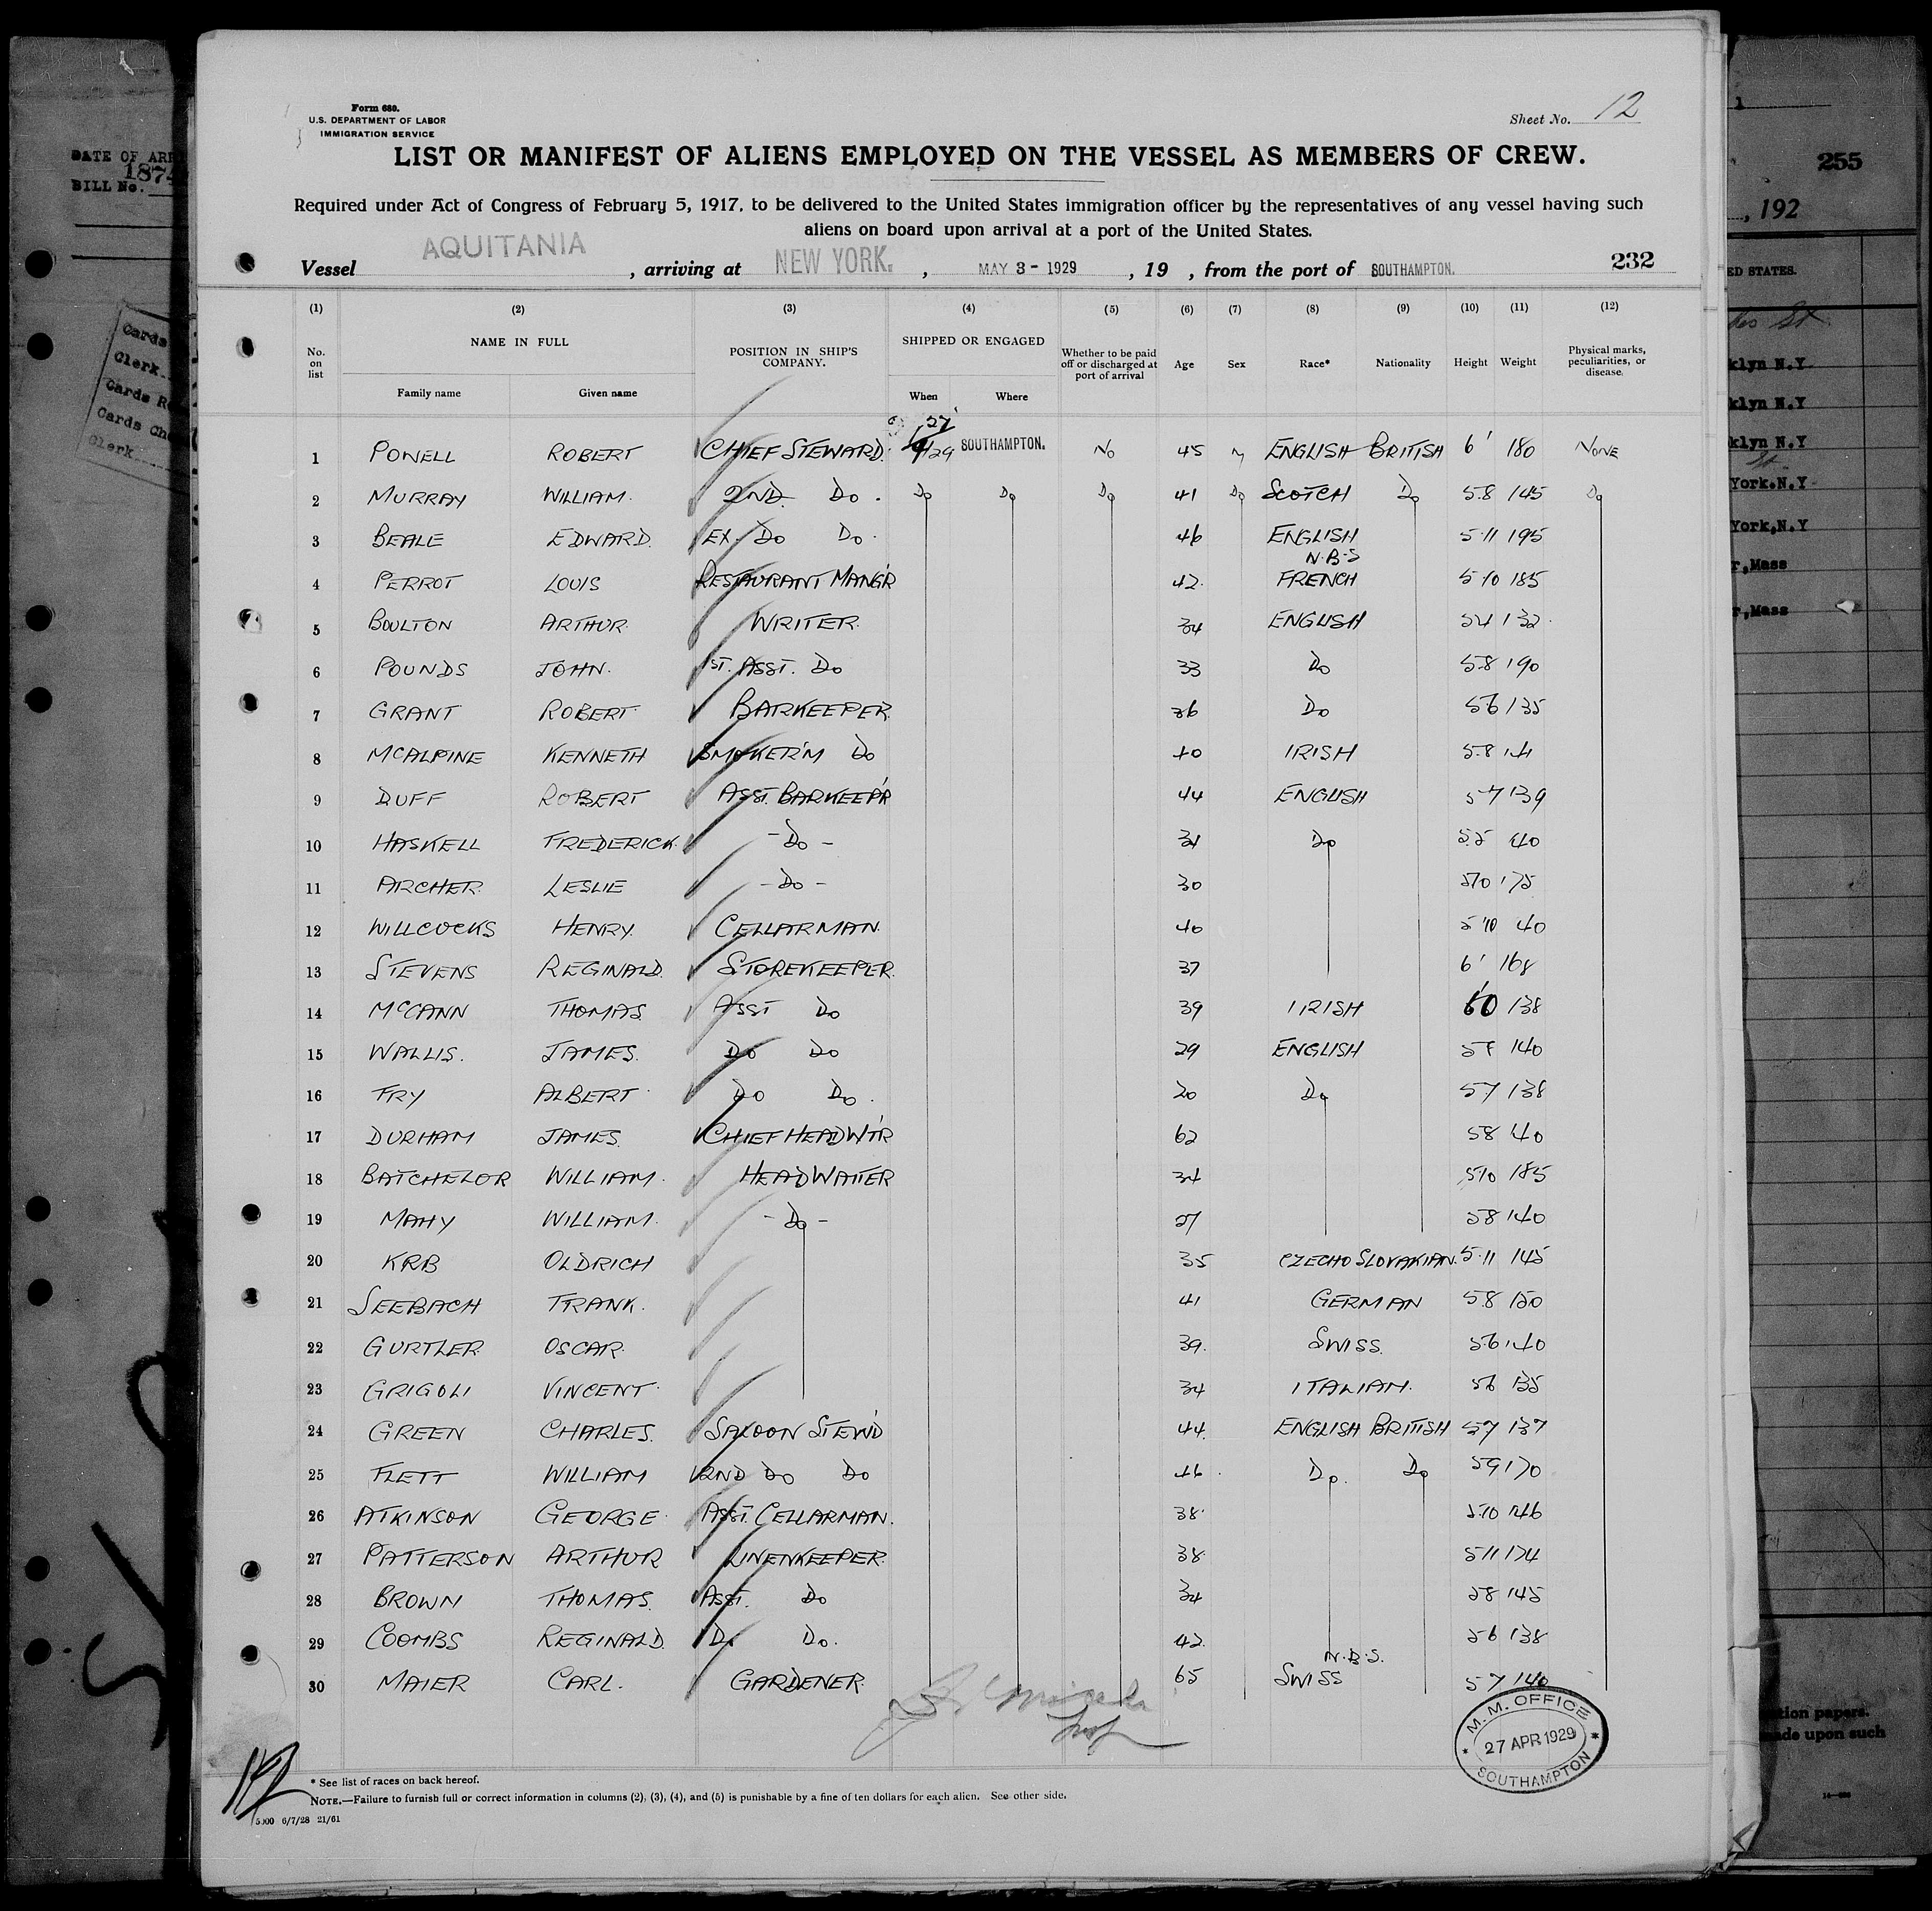 Form 680.
U.S. DEPARTMENT OF LABOR
IMMIGRATION SERVICE
Sheet No. 12
LIST OR MANIFEST OF ALIENS EMPLOYED ON THE VESSEL AS MEMBERS OF CREW.
Required under Act of Congress of February 5, 1917, to be delivered to the United States immigration officer by the representatives of any vessel having such
aliens on board upon arrival at a port of the United States.
Vessel AQUITANIA, arriving at NEW YORK., MAY 3 - 1929, 19 , from the port of SOUTHAMPTON. 232
(1) (2) (3) (4) (5) (6) (7) (8) (9) (10) (11) (12)
No. on list NAME IN FULL POSITION IN SHIP'S COMPANY. SHIPPED OR ENGAGED Whether to be paid off or discharged at port of arrival Age Sex Race* Nationality Height Weight Physical marks, peculiarities, or disease.
Family name Given name When Where
27
1 POWELL ROBERT CHIEF STEWARD. 4/29 SOUTHAMPTON. No 45 M ENGLISH BRITISH 6' 180 NONE
2 MURRAY WILLIAM. 2ND. Do. Do Do Do 41 Do SCOTCH Do 5.8 145 Do
3 BEALE EDWARD. EX. Do Do. 46 ENGLISH 5.11 195
N.B.S
4 PERROT LOUIS RESTAURANT MANG'R 42. FRENCH 5 10 185
5 BOULTON ARTHUR. WRITER. 34 ENGLISH 54 132.
6 POUNDS JOHN. 1ST. ASST. Do 33 Do 5.8 190
7 GRANT ROBERT. BARKEEPER. 36 Do 56 135
8 MCALPINE KENNETH SMOKER'M Do 40 IRISH 5.8
9 DUFF ROBERT ASST. BARKEEP'R 44 ENGLISH 57 139
10 HASKELL FREDERICK. - Do - Do 140
11 ARCHER. LESLIE - Do - 30 510 175
12 WILLCOCKS HENRY. CELLARMAN. 40 5 10 140
13 STEVENS REGINALD. STOREKEEPER. 37 6' 168
14 McCANN THOMAS. ASST Do 39 IRISH 138
15 WALLIS. JAMES. Do Do 29 ENGLISH 140
16 FRY ALBERT. Do Do. 20 Do 57 138
17 DURHAM JAMES. CHIEF HEAD WT'R 62 58 140
18 BATCHELOR WILLIAM. HEAD WAITER 34 510 185
19 MAHY WILLIAM. - Do - 27 58 140
20 KRB OLDRICH 35 CZECHO SLOVAKIAN. 5.11 145
21 SEEBACH FRANK. 41 GERMAN 5.8 150
22 GURTLER. OSCAR. 39. SWISS. 5.6 140
23 GRIGOLI VINCENT. 34 ITALIAN. 56 135
24 GREEN CHARLES. SALOON STEW'D 44. ENGLISH BRITISH 57 137
25 FLETT WILLIAM 2ND Do Do 46. Do. Do 59 170
26 ATKINSON GEORGE. ASST. CELLARMAN. 38. 5.10 146
27 PATTERSON ARTHUR LINENKEEPER. 38. 511 174
28 BROWN THOMAS. ASST. Do 34 58 145
29 COOMBS REGINALD. Do Do. 42. 56 138
N.B.S.
30 MAIER CARL. GARDENER. 65 SWISS 57 140
M. M. OFFICE
27 APR 1929
SOUTHAMPTON
* See list of races on back hereof.
NOTE.—Failure to furnish full or correct information in columns (2), (3), (4), and (5) is punishable by a fine of ten dollars for each alien. See other side.
5000 6/7/28 21/61
DATE OF ARR
1874
BILL No.
Cards
Clerk
Cards R
Cards Che
Clerk
255
, 192
ED STATES.
klyn N.Y.
klyn N.Y
klyn N.Y
York.N.Y.
York,N.Y
r,Mass
r,Mass
tion papers.
ade upon such